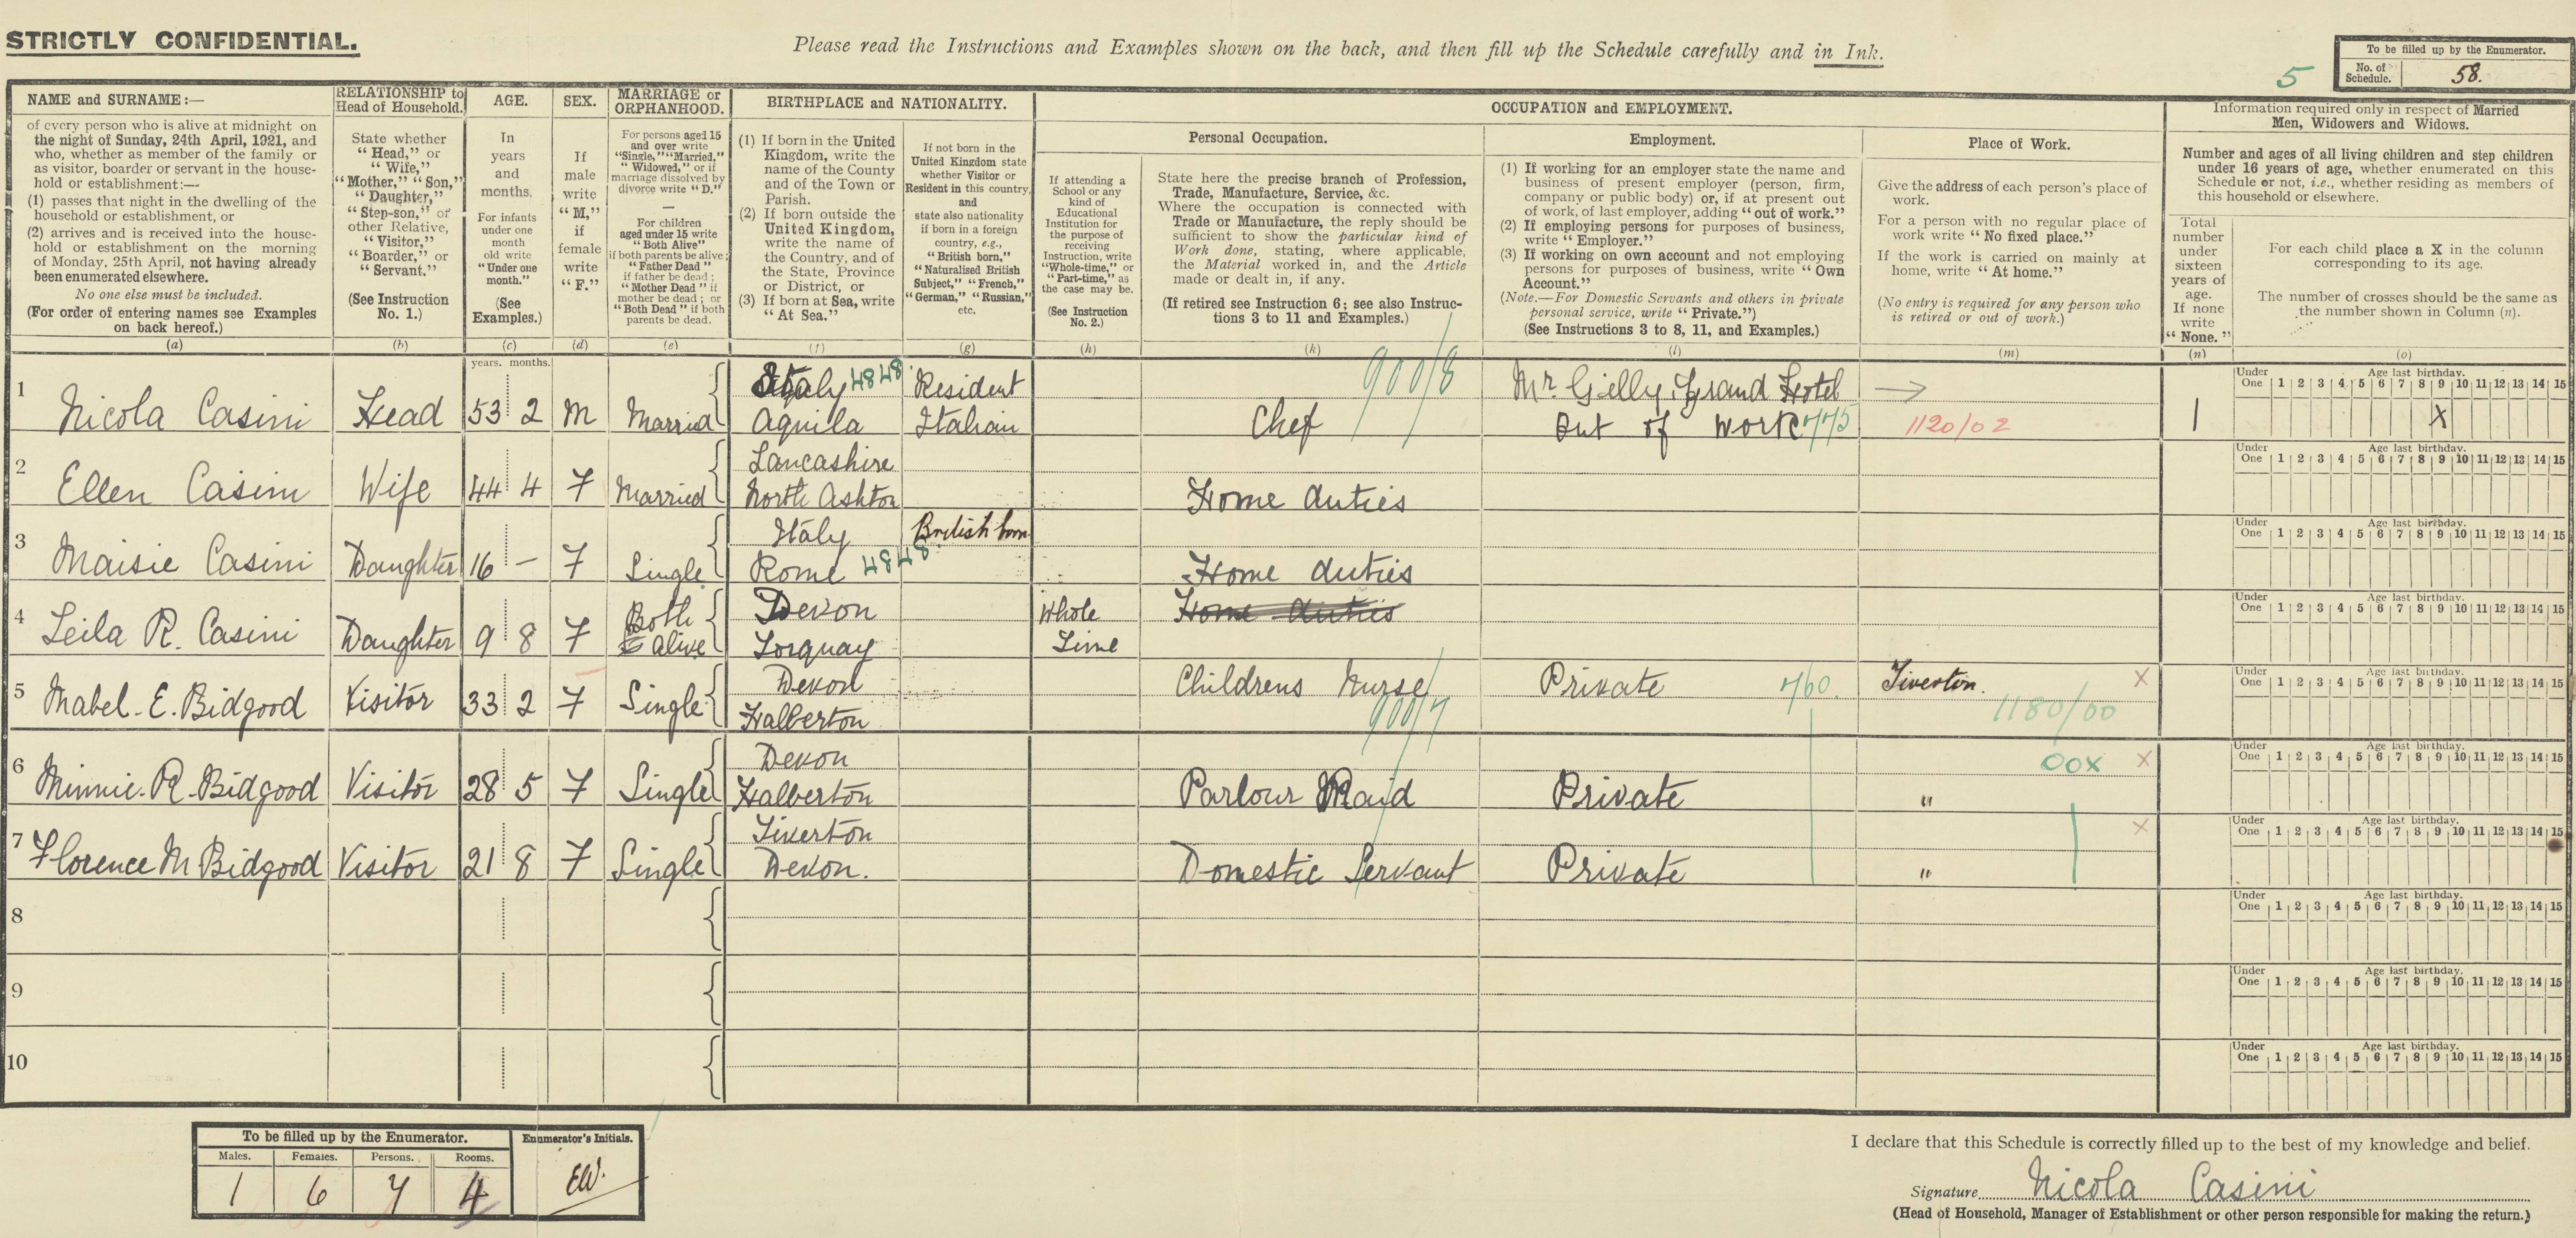 STRICTLY CONFIDENTIAL.
Please read the Instructions and Examples shown on the back, and then fill up the Schedule carefully and in Ink.
5
To be filled up by the Enumerator.
No. of Schedule. 58.
NAME and SURNAME:—
of every person who is alive at midnight on
the night of Sunday, 24th April, 1921, and
who, whether as member of the family or
as visitor, boarder or servant in the house-
hold or establishment:—
(1) passes that night in the dwelling of the
household or establishment, or
(2) arrives and is received into the house-
hold or establishment on the morning
of Monday, 25th April, not having already
been enumerated elsewhere.
No one else must be included.
(For order of entering names see Examples
on back hereof.)
(a)
RELATIONSHIP to
Head of Household.
State whether
"Head," or
"Wife,"
"Mother," "Son,"
"Daughter,"
"Step-son," or
other Relative,
"Visitor,"
"Boarder," or
"Servant."
(See Instruction
No. 1.)
(b)
AGE.
In
years
and
months.
For infants
under one
month
old write
"Under one
month."
(See
Examples.)
(c)
SEX.
If
male
write
"M,"
if
female
write
"F."
(d)
MARRIAGE or
ORPHANHOOD.
For persons aged 15
and over write
"Single," "Married,"
"Widowed," or if
marriage dissolved by
divorce write "D."
—
For children
aged under 15 write
"Both Alive"
if both parents be alive;
"Father Dead"
if father be dead;
"Mother Dead" if
mother be dead; or
"Both Dead" if both
parents be dead.
(e)
BIRTHPLACE and NATIONALITY.
(1) If born in the United
Kingdom, write the
name of the County
and of the Town or
Parish.
(2) If born outside the
United Kingdom,
write the name of
the Country, and of
the State, Province
or District, or
(3) If born at Sea, write
"At Sea."
(f)
If not born in the
United Kingdom state
whether Visitor or
Resident in this country,
and
state also nationality
if born in a foreign
country, e.g.,
"British born,"
"Naturalised British
Subject," "French,"
"German," "Russian,"
etc.
(g)
OCCUPATION and EMPLOYMENT.
If attending a
School or any
kind of
Educational
Institution for
the purpose of
receiving
Instruction, write
"Whole-time," or
"Part-time," as
the case may be.
(See Instruction
No. 2.)
(h)
Personal Occupation.
State here the precise branch of Profession,
Trade, Manufacture, Service, &c.
Where the occupation is connected with
Trade or Manufacture, the reply should be
sufficient to show the particular kind of
Work done, stating, where applicable,
the Material worked in, and the Article
made or dealt in, if any.
(If retired see Instruction 6; see also Instruc-
tions 3 to 11 and Examples.)
(k)
Employment.
(1) If working for an employer state the name and
business of present employer (person, firm,
company or public body) or, if at present out
of work, of last employer, adding "out of work."
(2) If employing persons for purposes of business,
write "Employer."
(3) If working on own account and not employing
persons for purposes of business, write "Own
Account."
(Note.—For Domestic Servants and others in private
personal service, write "Private.")
(See Instructions 3 to 8, 11, and Examples.)
(l)
Place of Work.
Give the address of each person's place of
work.
For a person with no regular place of
work write "No fixed place."
If the work is carried on mainly at
home, write "At home."
(No entry is required for any person who
is retired or out of work.)
(m)
Information required only in respect of Married
Men, Widowers and Widows.
Number and ages of all living children and step children
under 16 years of age, whether enumerated on this
Schedule or not, i.e., whether residing as members of
this household or elsewhere.
Total
number
under
sixteen
years of
age.
If none
write
"None."
(n)
For each child place a X in the column
corresponding to its age.
The number of crosses should be the same as
the number shown in Column (n).
(o)
years. months.
Under One Age last birthday. 1 2 3 4 5 6 7 8 9 10 11 12 13 14 15
1 Nicola Casini Head 53 2 M Married Italy 4848 Aquila Resident Italian Chef 900/8 Mr. Gielly, Grand Hotel Out of Work 775 1120/02 1 X
Under One Age last birthday. 1 2 3 4 5 6 7 8 9 10 11 12 13 14 15
2 Ellen Casini Wife 44 4 F Married Lancashire North Ashton Home duties
Under One Age last birthday. 1 2 3 4 5 6 7 8 9 10 11 12 13 14 15
3 Maisie Casini Daughter 16 – F Single Italy Rome 4848 British born Home duties
Under One Age last birthday. 1 2 3 4 5 6 7 8 9 10 11 12 13 14 15
4 Leila R. Casini Daughter 9 8 F Both Alive Devon Torquay Whole Time Home duties
Under One Age last birthday. 1 2 3 4 5 6 7 8 9 10 11 12 13 14 15
5 Mabel. E. Bidgood Visitor 33 2 F Single Devon Halberton Childrens Nurse 900/7 Private 760 Tiverton. X 1180/00
Under One Age last birthday. 1 2 3 4 5 6 7 8 9 10 11 12 13 14 15
6 Minnie. R. Bidgood Visitor 28 5 F Single Devon Halberton Parlour Maid Private " 00X X
Under One Age last birthday. 1 2 3 4 5 6 7 8 9 10 11 12 13 14 15
7 Florence M Bidgood Visitor 21 8 F Single Tiverton Devon. Domestic Servant Private " X
Under One Age last birthday. 1 2 3 4 5 6 7 8 9 10 11 12 13 14 15
8
Under One Age last birthday. 1 2 3 4 5 6 7 8 9 10 11 12 13 14 15
9
Under One Age last birthday. 1 2 3 4 5 6 7 8 9 10 11 12 13 14 15
10
To be filled up by the Enumerator.
Males. Females. Persons. Rooms.
1 6 7 4
Enumerator's Initials.
EW.
I declare that this Schedule is correctly filled up to the best of my knowledge and belief.
Signature Nicola Casini
(Head of Household, Manager of Establishment or other person responsible for making the return.)